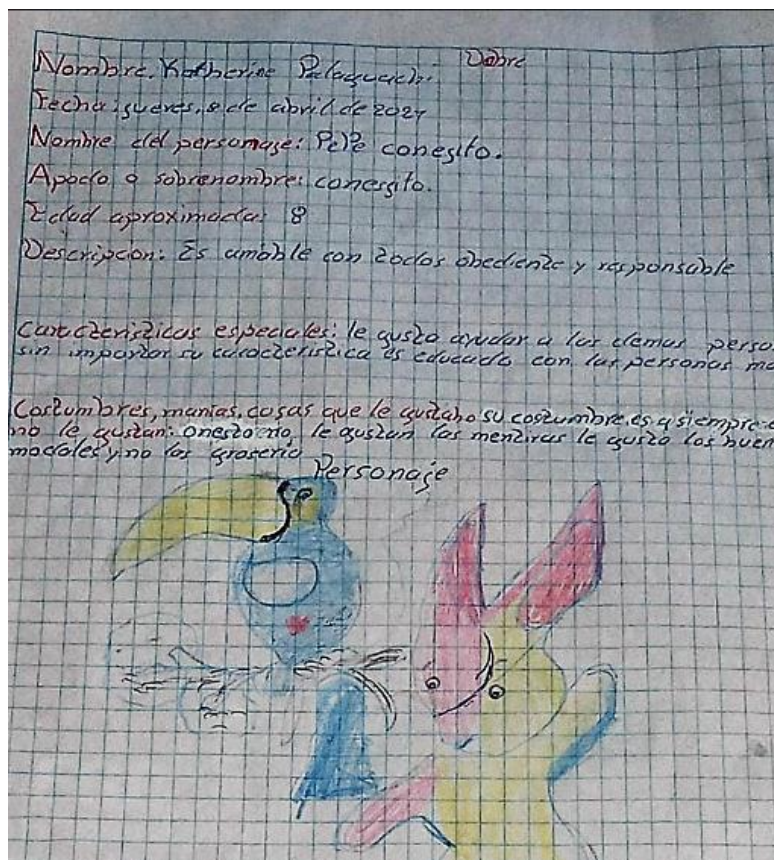 Debre
Nombre. Katherine Pelaguachi.
Fecha: jueves, 8 de abril de 2021
Nombre del personaje: Pepe conejito.
Apodo o sobrenombre: conejito.
Edad aproximada: 8
Descripcion: Es amable con todos obediente y responsable
Caracteristicas especiales: le gusta ayudar a las demas perso
sin importar su caracteristica es educado con las personas ma
Costumbres, manias, cosas que le gustabo su costumbre, es q siempre
no le gustan: onesto no, le gustan las mentiras le gusta los buen
modales y no las groseria
Personaje